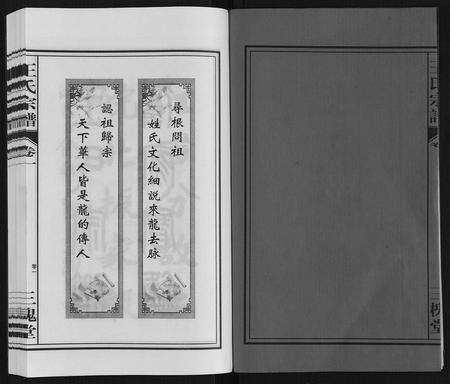 尋根問祖
姓氏文化細説來龍去脉
認祖歸宗
天下華人皆是龍的傳人
王氏宗譜
卷一
三槐堂
王氏宗譜
三槐堂